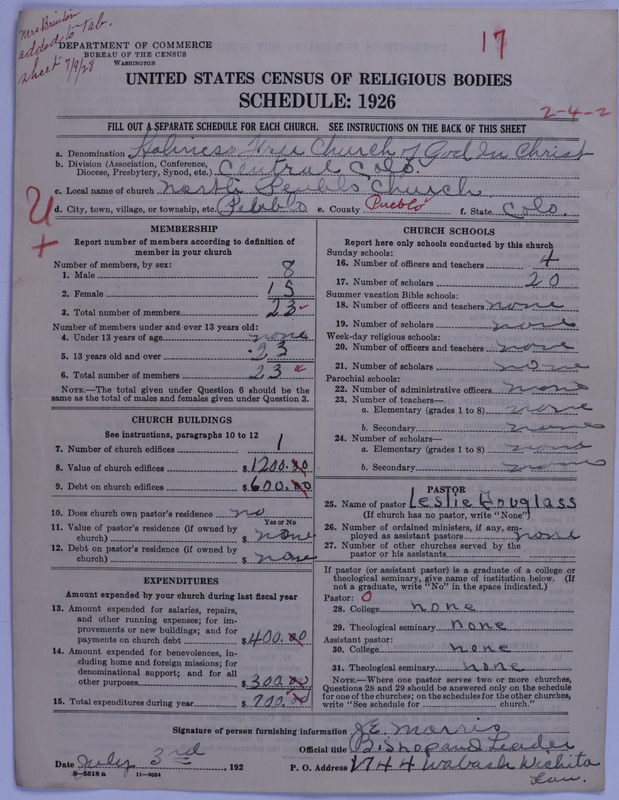 Mrs Brinton
added to Tab.
sheet 7/9/28
DEPARTMENT OF COMMERCE
BUREAU OF THE CENSUS
WASHINGTON
17
UNITED STATES CENSUS OF RELIGIOUS BODIES
SCHEDULE: 1926
2-4-2
FILL OUT A SEPARATE SCHEDULE FOR EACH CHURCH. SEE INSTRUCTIONS ON THE BACK OF THIS SHEET
a. Denomination Holiness Free Church of God In Christ
b. Division (Association, Conference, Diocese, Presbytery, Synod, etc.) Central Colo.
c. Local name of church North Peublo Church
d. City, town, village, or township, etc. Peublo e. County Pueblo f. State Colo.
U
+
MEMBERSHIP
Report number of members according to definition of
member in your church
Number of members, by sex:
1. Male 8
2. Female 15
3. Total number of members 23
Number of members under and over 13 years old:
4. Under 13 years of age none
5. 13 years old and over 23
6. Total number of members 23
NOTE.—The total given under Question 6 should be the
same as the total of males and females given under Question 3.
CHURCH BUILDINGS
See instructions, paragraphs 10 to 12
7. Number of church edifices 1
8. Value of church edifices $ 1200.00
9. Debt on church edifices $ 600.00
10. Does church own pastor's residence no
Yes or No
11. Value of pastor's residence (if owned by
church) $ none
12. Debt on pastor's residence (if owned by
church) $ none
EXPENDITURES
Amount expended by your church during last fiscal year
13. Amount expended for salaries, repairs,
and other running expenses; for im-
provements or new buildings; and for
payments on church debt $ 400.00
14. Amount expended for benevolences, in-
cluding home and foreign missions; for
denominational support; and for all
other purposes $ 300.00
15. Total expenditures during year $ 700.00
CHURCH SCHOOLS
Report here only schools conducted by this church
Sunday schools:
16. Number of officers and teachers 4
17. Number of scholars 20
Summer vacation Bible schools:
18. Number of officers and teachers none
19. Number of scholars none
Week-day religious schools:
20. Number of officers and teachers none
21. Number of scholars none
Parochial schools:
22. Number of administrative officers none
23. Number of teachers—
a. Elementary (grades 1 to 8) none
b. Secondary none
24. Number of scholars—
a. Elementary (grades 1 to 8) none
b. Secondary none
PASTOR
25. Name of pastor Leslie Douglass
(If church has no pastor, write "None")
26. Number of ordained ministers, if any, em-
ployed as assistant pastors none
27. Number of other churches served by the
pastor or his assistants
If pastor (or assistant pastor) is a graduate of a college or
theological seminary, give name of institution below. (If
not a graduate, write "No" in the space indicated.)
Pastor: 0
28. College none
29. Theological seminary none
Assistant pastor:
30. College none
31. Theological seminary none
NOTE.—Where one pastor serves two or more churches,
Questions 28 and 29 should be answered only on the schedule
for one of the churches; on the schedules for the other churches,
write "See schedule for church."
Signature of person furnishing information J.E. Morris
Official title Bishop and Leader
Date July 3rd, 192 P. O. Address 1744 Wabash Wichita
Kan.
8-5518 a 11-9084